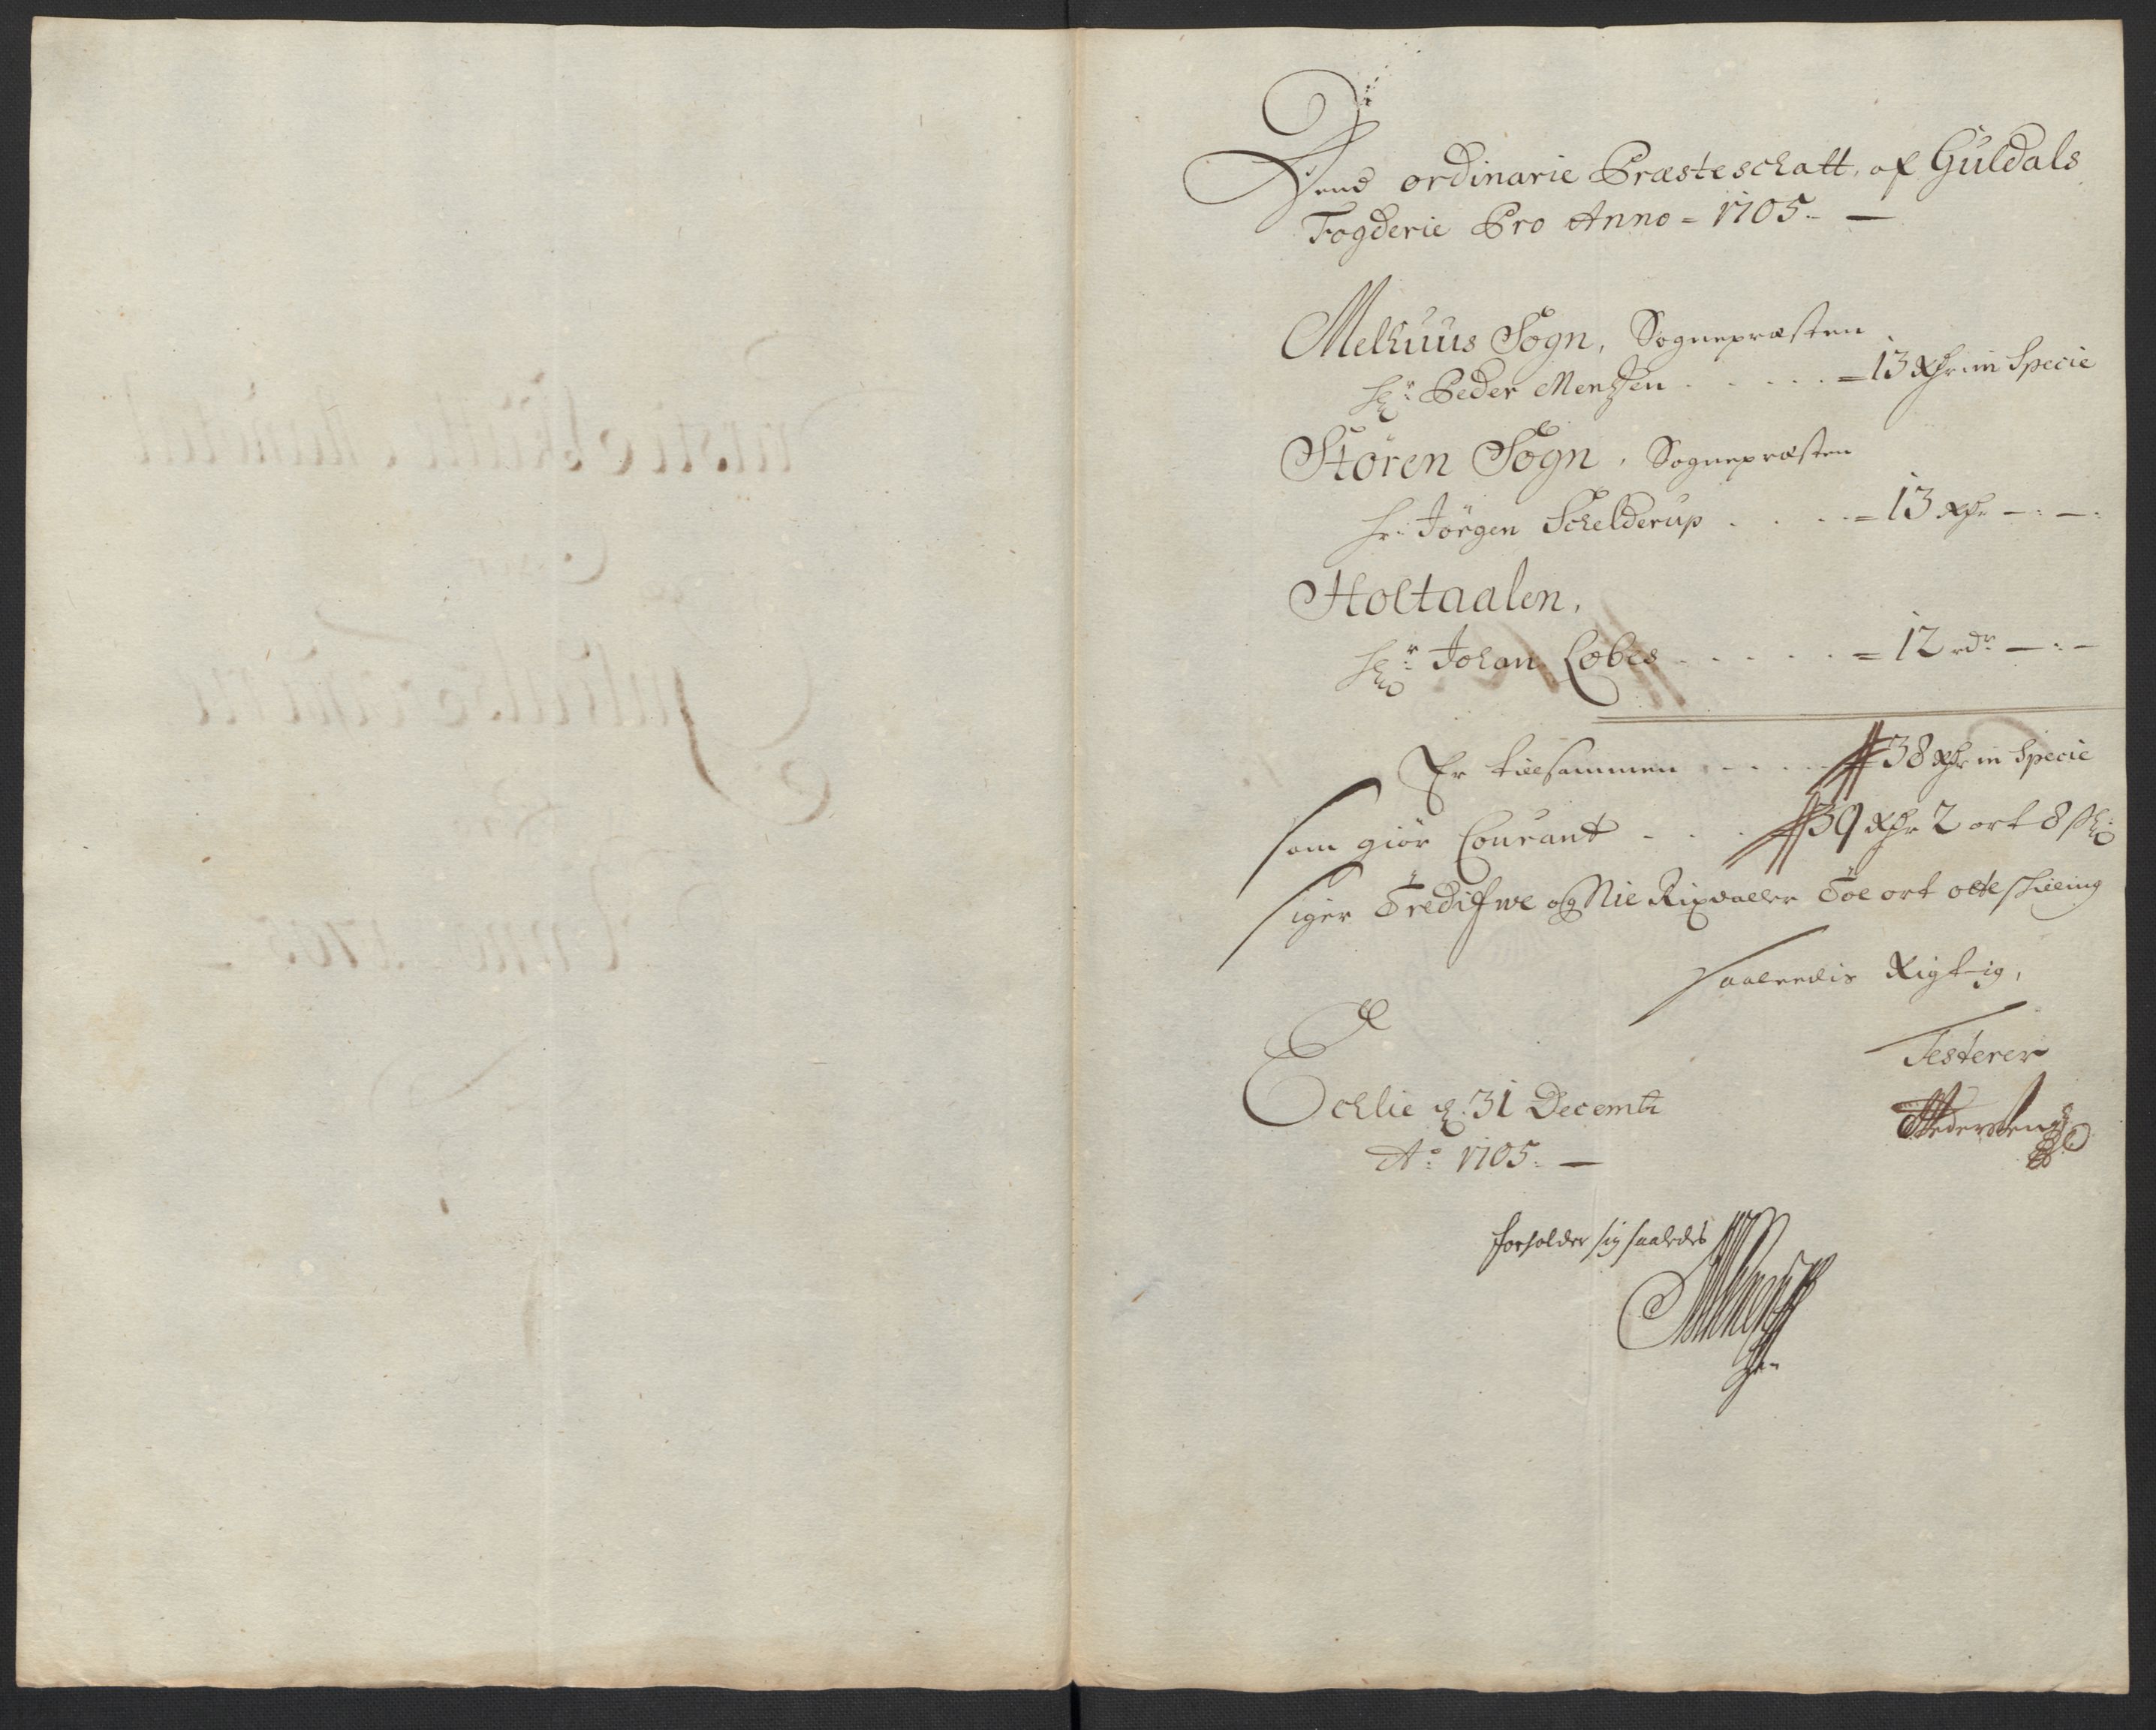 Dend ordinarie Præsteschatt, af Guldals
Fogderie Pro Anno = 1705. —
Melhuus Sogn, Sognepræsten
Hr: Peder Mentzen . . . . . = 13 Rdr in Specie
Stören Sogn, Sognepræsten
Hr: Jörgen Schelderup . . . . = 13 Rdr — : —
Holtaalen,
Hr: Johan Lobes . . . . . = 12 rdr — : —
Er tilsammen . . . . 38 Rdr in Specie
som giör Courant . . . 39 Rdr 2 ort 8 sk:
siger Tredifwe og Nie Rixdaller Toe ort otte skiling
saaledis Rigtig,
Testerer
Echlie d. 31 Decembr
Ao: 1705. —
forholder sig saaledis